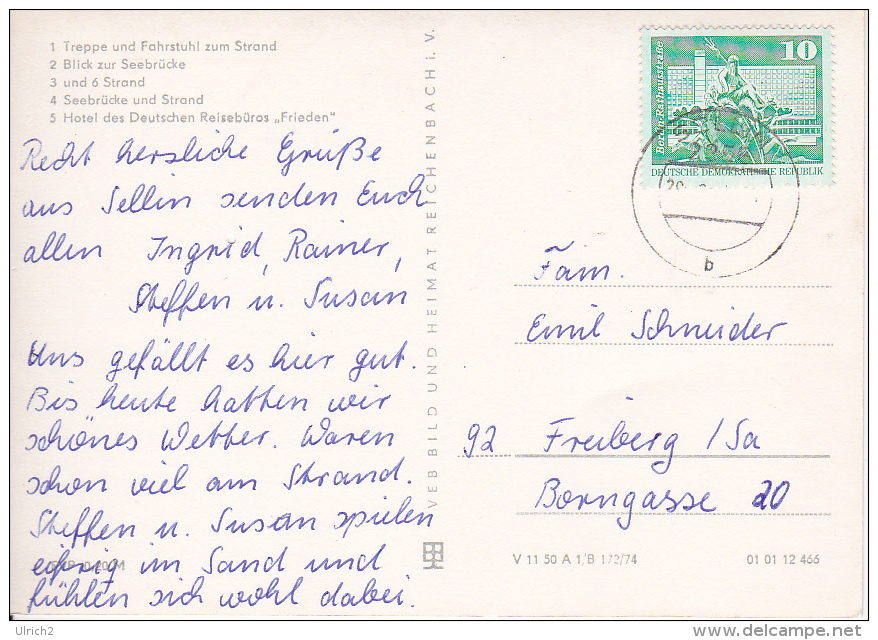 1 Treppe und Fahrstuhl zum Strand
2 Blick zur Seebrücke
3 und 6 Strand
4 Seebrücke und Strand
5 Hotel des Deutschen Reisebüros „Frieden"
Recht herzliche Grüße
aus Sellin senden Euch
allen Ingrid, Rainer,
Steffen u. Susan
Uns gefällt es hier gut.
Bis heute hatten wir
schönes Wetter. Waren
schon viel am Strand.
Steffen u. Susan spielen
eifrig im Sand und
fühlen sich wohl dabei.
VEB BILD UND HEIMAT REICHENBACH i. V.
10
DEUTSCHE DEMOKRATISCHE REPUBLIK
b
Fam.
Emil Schneider
92 Freiberg / Sa
Borngasse 20
V 11 50 A 1/B 172/74 01 01 12 466
Ulrich2
delcampe.net